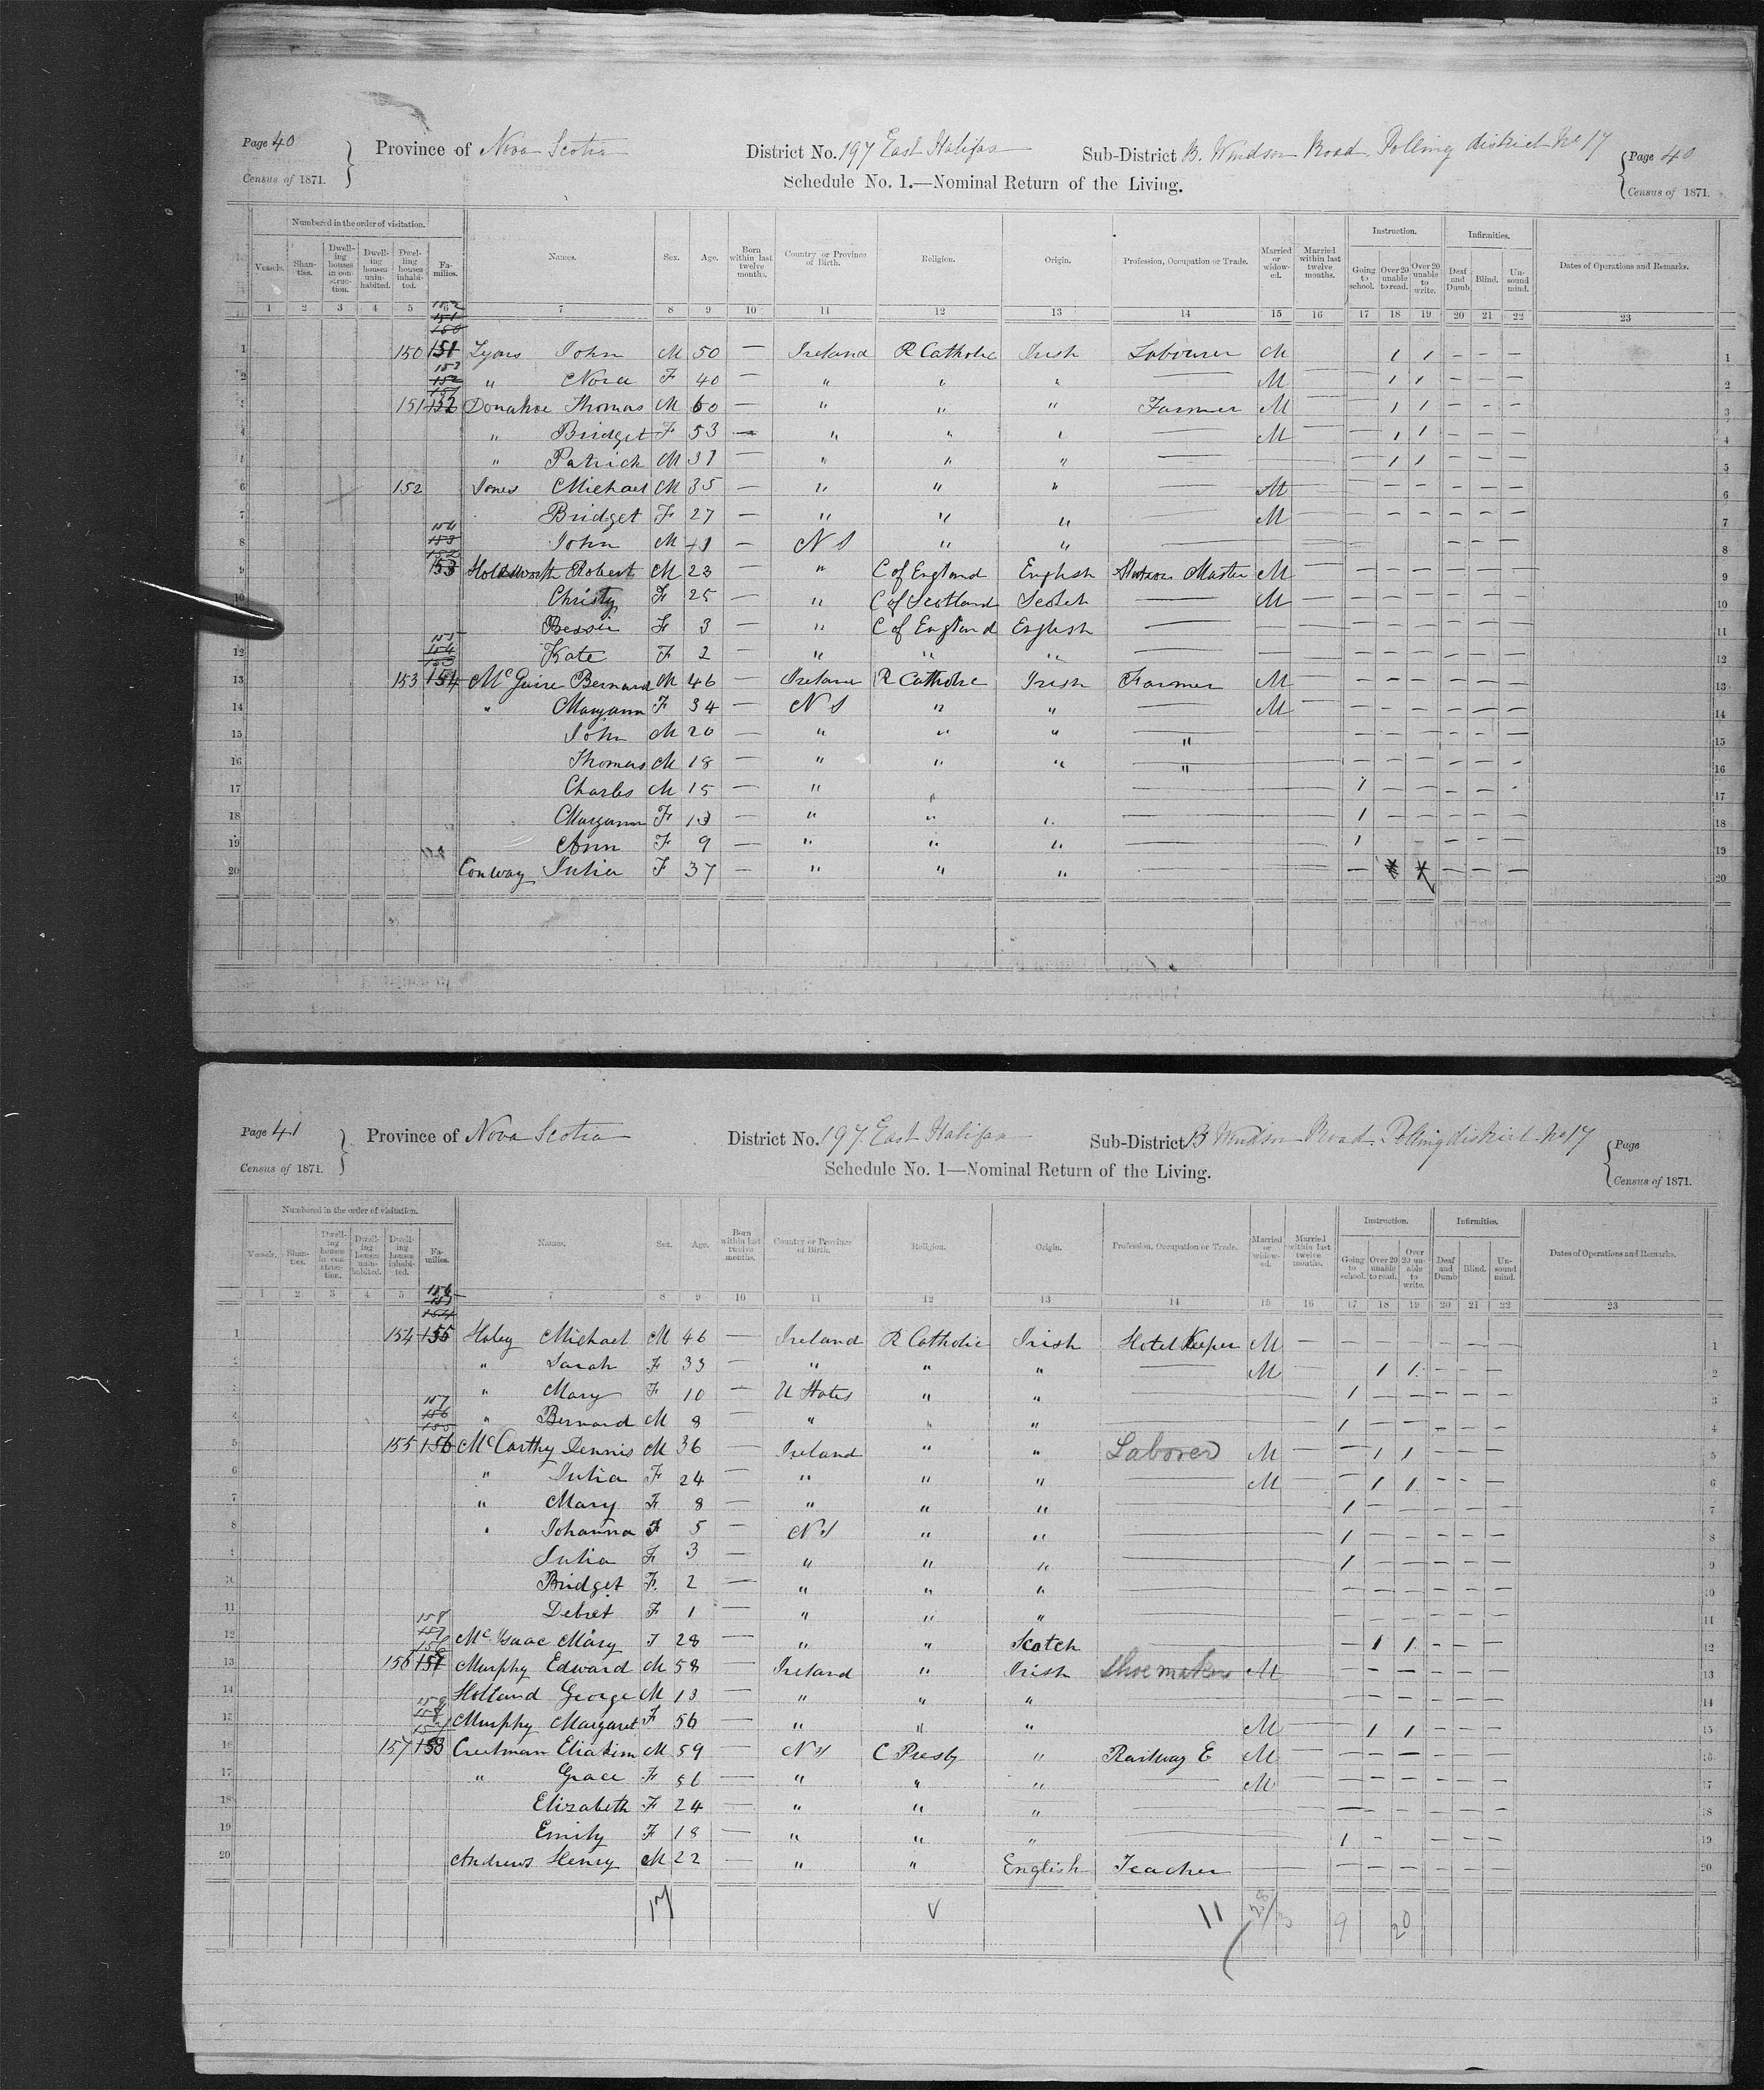 Page 40
Province of Nova Scotia District No. 197 East Halifax Sub-District B. Windsor Road Polling district No 17 Page 40
Census of 1871. Schedule No. 1.—Nominal Return of the Living. Census of 1871.
Numbered in the order of visitation. Instruction. Infirmities.
Vessels. Shanties. Dwelling houses in construction. Dwelling houses uninhabited. Dwelling houses inhabited. Families. Names. Sex. Age. Born within last twelve months. Country or Province of Birth. Religion. Origin. Profession, Occupation or Trade. Married or widowed. Married within last twelve months. Going to school. Over 20 unable to read. Over 20 unable to write. Deaf and Dumb. Blind. Unsound mind. Dates of Operations and Remarks.
1 2 3 4 5 6 7 8 9 10 11 12 13 14 15 16 17 18 19 20 21 22 23
152
151
150
1 150 151 Lyons John M 50 — Ireland R Catholic Irish Labourer M 1 1 — — — 1
153
152
2 " Nora F 40 — " " " — M — 1 1 — — — 2
151
3 151 152 Donahoe Thomas M 60 — " " " Farmer M — 1 1 — — — 3
4 " Bridget F 53 — " " " — M — 1 1 — — — 4
" Patrick M 31 — " " " — — 1 1 — — — 5
6 152 Jones Michael M 35 — " " " — M — — — — — — — 6
7 Bridget F 27 — " " " — M — — — — — — — 7
154
153
152
8 John M 1 — N S " " — — — — 8
9 153 Holdsworth Robert M 23 — " C of England English Station Master M — — — — — — — 9
10 Christy F 25 — " C of Scotland Scotch — M — — — — — — — 10
Bessie F 3 — " C of England English — — — — — — — — 11
155
154
153
12 Kate F 2 — " " " — — — — — — — — 12
13 153 154 McGuire Bernard M 46 — Ireland R Catholic Irish Farmer M — — — — — — — 13
14 " Maryann F 34 — N S " " — M — — — — — — — 14
15 John M 20 — " " " " — — — — — — 15
16 Thomas M 18 — " " " " — — — — — — 16
17 Charles M 15 — " " — 1 — — — — 17
18 Maryann F 13 — " " " — 1 — — — — — 18
19 Ann F 9 — " " " — 1 — — — — 19
20 Conway Julia F 37 — " " " — — — — — 20
Page 41
Province of Nova Scotia District No. 197 East Halifax Sub-District B Windsor Road Polling district No 17 Page
Census of 1871. Schedule No. 1—Nominal Return of the Living. Census of 1871.
Numbered in the order of visitation. Instruction. Infirmities.
Vessels. Shanties. Dwelling houses in construction. Dwelling houses uninhabited. Dwelling houses inhabited. Families. Names. Sex. Age. Born within last twelve months. Country or Province of Birth. Religion. Origin. Profession, Occupation or Trade. Married or widowed. Married within last twelve months. Going to school. Over 20 unable to read. Over 20 unable to write. Deaf and Dumb Blind. Unsound mind. Dates of Operations and Remarks.
1 2 3 4 5 7 8 9 10 11 12 13 14 15 16 17 18 19 20 21 22 23
156
155
154
1 154 155 Haley Michael M 46 — Ireland R Catholic Irish Hotel Keeper M — — — — — — — 1
2 " Sarah F 33 — " " " — M — 1 1 — — — 2
3 " Mary F 10 — U States " " — 1 — — — — — 3
157
156
155
4 " Bernard M 8 — " " " 1 — — — — — 4
5 155 156 McCarthy Dennis M 36 — Ireland " " Laborer M — — 1 1 — — — 5
6 " Julia F 24 — " " " — M — — 1 1 — — — 6
7 " Mary F 8 — " " " — 1 — — — — — 7
8 " Johanna F 5 — N S " " — 1 — — — — — 8
9 Julia F 3 — " " " — 1 — — — — — 9
10 Bridget F 2 — " " " — — — — — — — 10
11 F 1 — " " " — — — — — — — 11
158
157
156
12 McIsaac Mary F 28 — " " Scotch — 1 1 — — — 12
13 156 157 Murphy Edward M 58 — Ireland " Irish Shoemaker M — — — — — — — 13
14 Holland George M 13 — " " " — — — — — — 14
159
158
157
15 Murphy Margaret F 56 — " " " M — — 1 1 — — — 15
16 157 158 Creelman Eliakim M 59 — N S C Presby " Railway E M — — — — — — — 16
17 " Grace F 56 — " " " — M — — — — — — 7
18 Elizabeth F 24 — " " " — — — — — — — 18
19 Emily F 18 — " " " — 1 — — — — 19
20 Andrews Henry M 22 — " " English Teacher — — — — — — 20
17 11 9 20